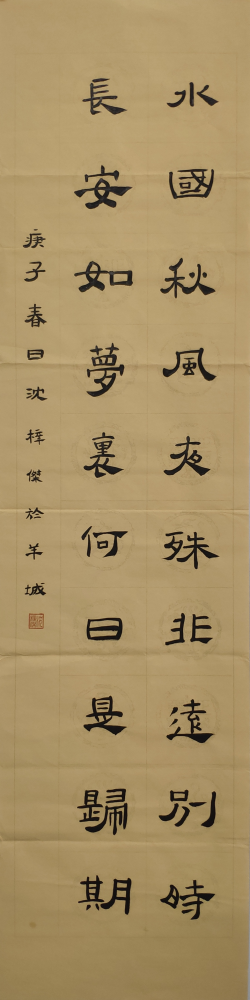 水國秋風夜殊非遠別時
長安如夢裏何日是歸期
庚子春日沈梓傑於羊城